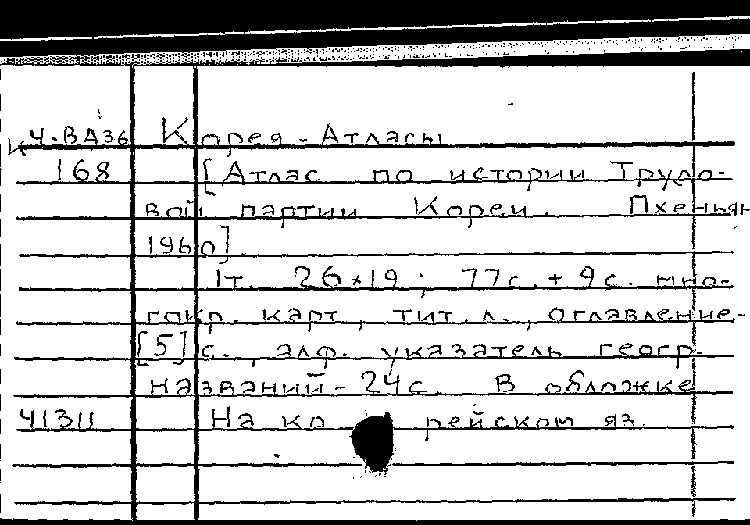 Ч.ВАЗ6 Корея - Атласы
168 [Атлас по истории Трудо-
вой партии Кореи. Пхеньян
1960].
1т. 26×19; 77с. + 9с. мно-
гокр. карт, тит. л., оглавление-
[5] с., алф. указатель геогр.
названий - 24с. В обложке
41311 На корейском яз.